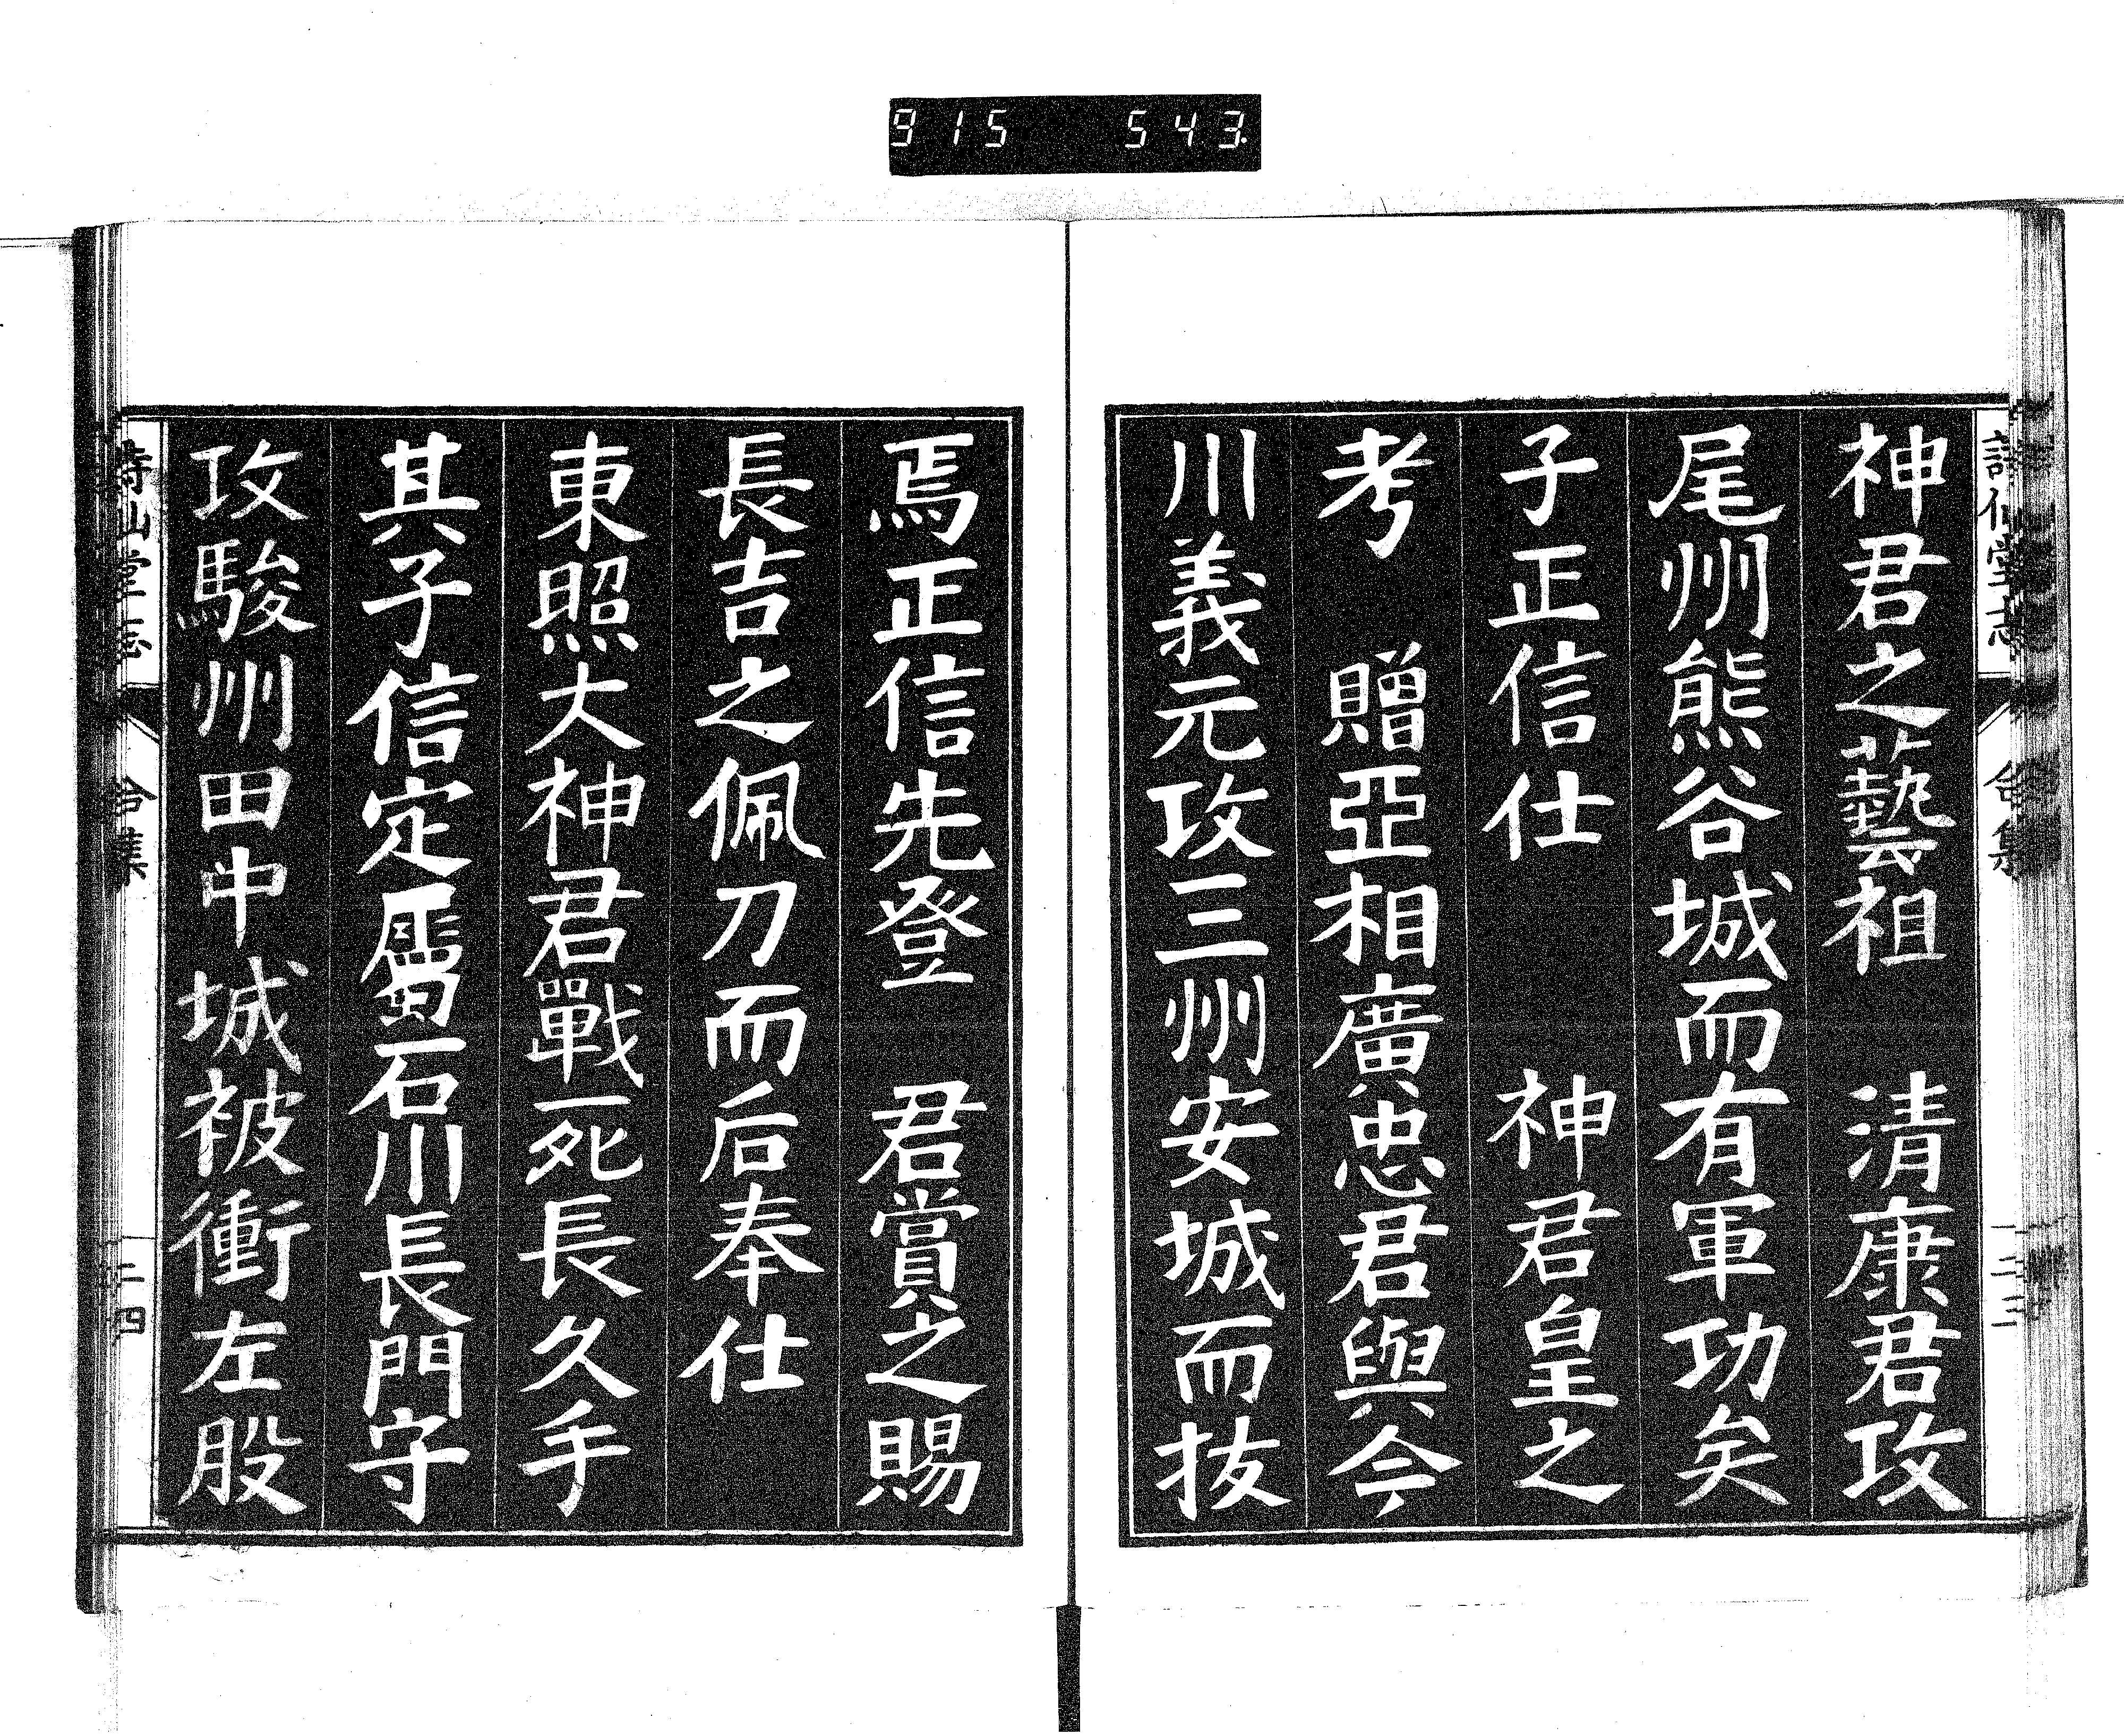 915 543.
神君之藝祖 清康君攻
尾州熊谷城而有軍功矣
子正信仕 神君皇之
考 贈亞相廣忠君與今
川義元攻三州安城而拔
焉正信先登 君賞之賜
長吉之佩刀而后奉仕
東照大神君戰死長久手
其子信定屬石川長門守
攻駿州田中城被衝左股
二四